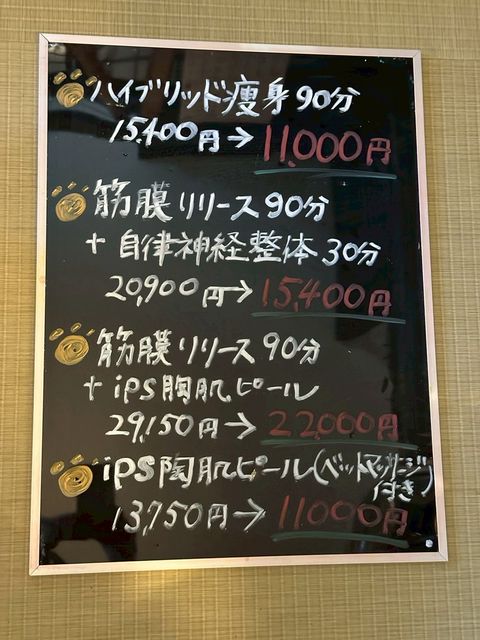 ハイブリッド痩身 90分
15,400円→11,000円
筋膜リリース 90分
+自律神経整体 30分
20,900円→15,400円
筋膜リリース 90分
+ips陶肌ピール
29,150円→22,000円
ips陶肌ピール(ベッドマッサージ付き)
13,750円→11,000円